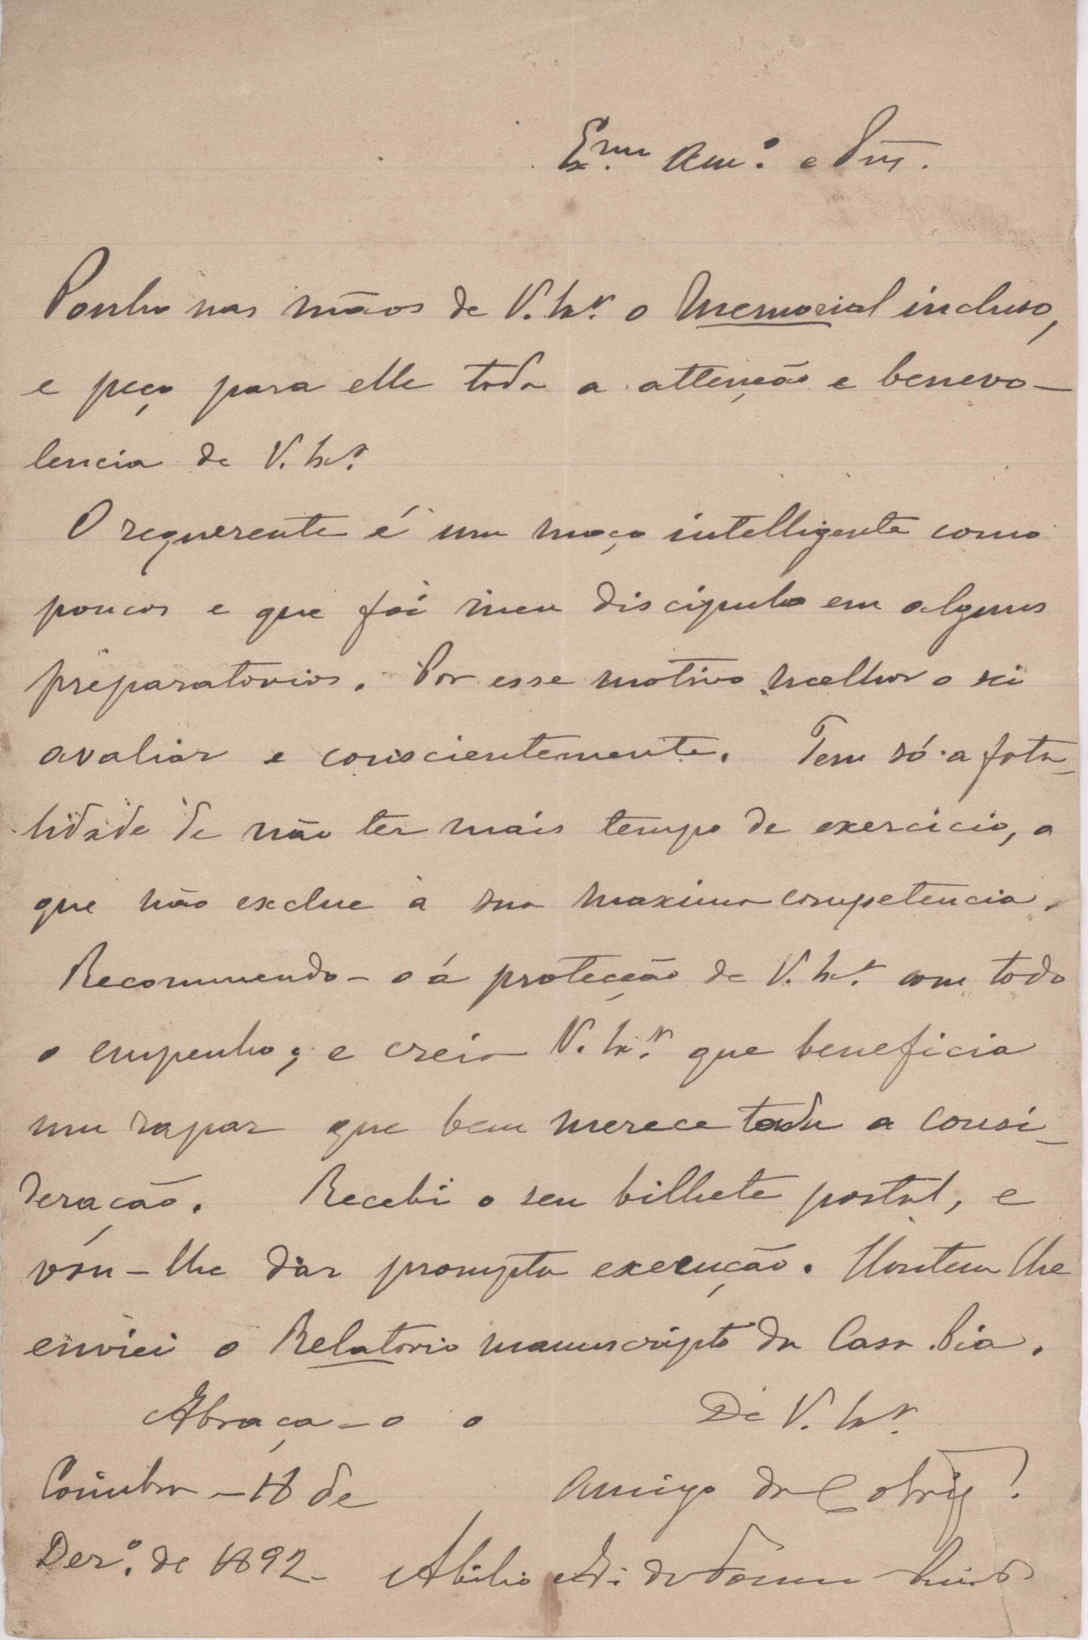 Ex.mo Am.º e Snr.
Ponho nas mãos de V. Ex.ª o Memorial incluso,
e peço para elle toda a attenção e benevo-
lencia de V. Ex.ª
O requerente é um moço intelligente como
poucos e que foi meu discipulo em alguns
preparatorios. Por esse motivo melhor o sei
avaliar e conscientemente. Tem só a fata-
lidade de não ter mais tempo de exercicio, o
que não exclue a sua maxima competencia.
Recommendo-o á protecção de V. Ex.ª com todo
o empenho, e creia V. Ex.ª que beneficia
um rapaz que bem merece toda a consi-
deração. Recebi o seu bilhete postal, e
vou-lhe dar prompta execução. Hontem lhe
enviei o Relatorio manuscripto da Casa Pia.
Abraça-o o De V. Ex.ª
Coimbra - 18 de Amigo
Dez.º de 1892 - Abilio da Fonseca Pinto